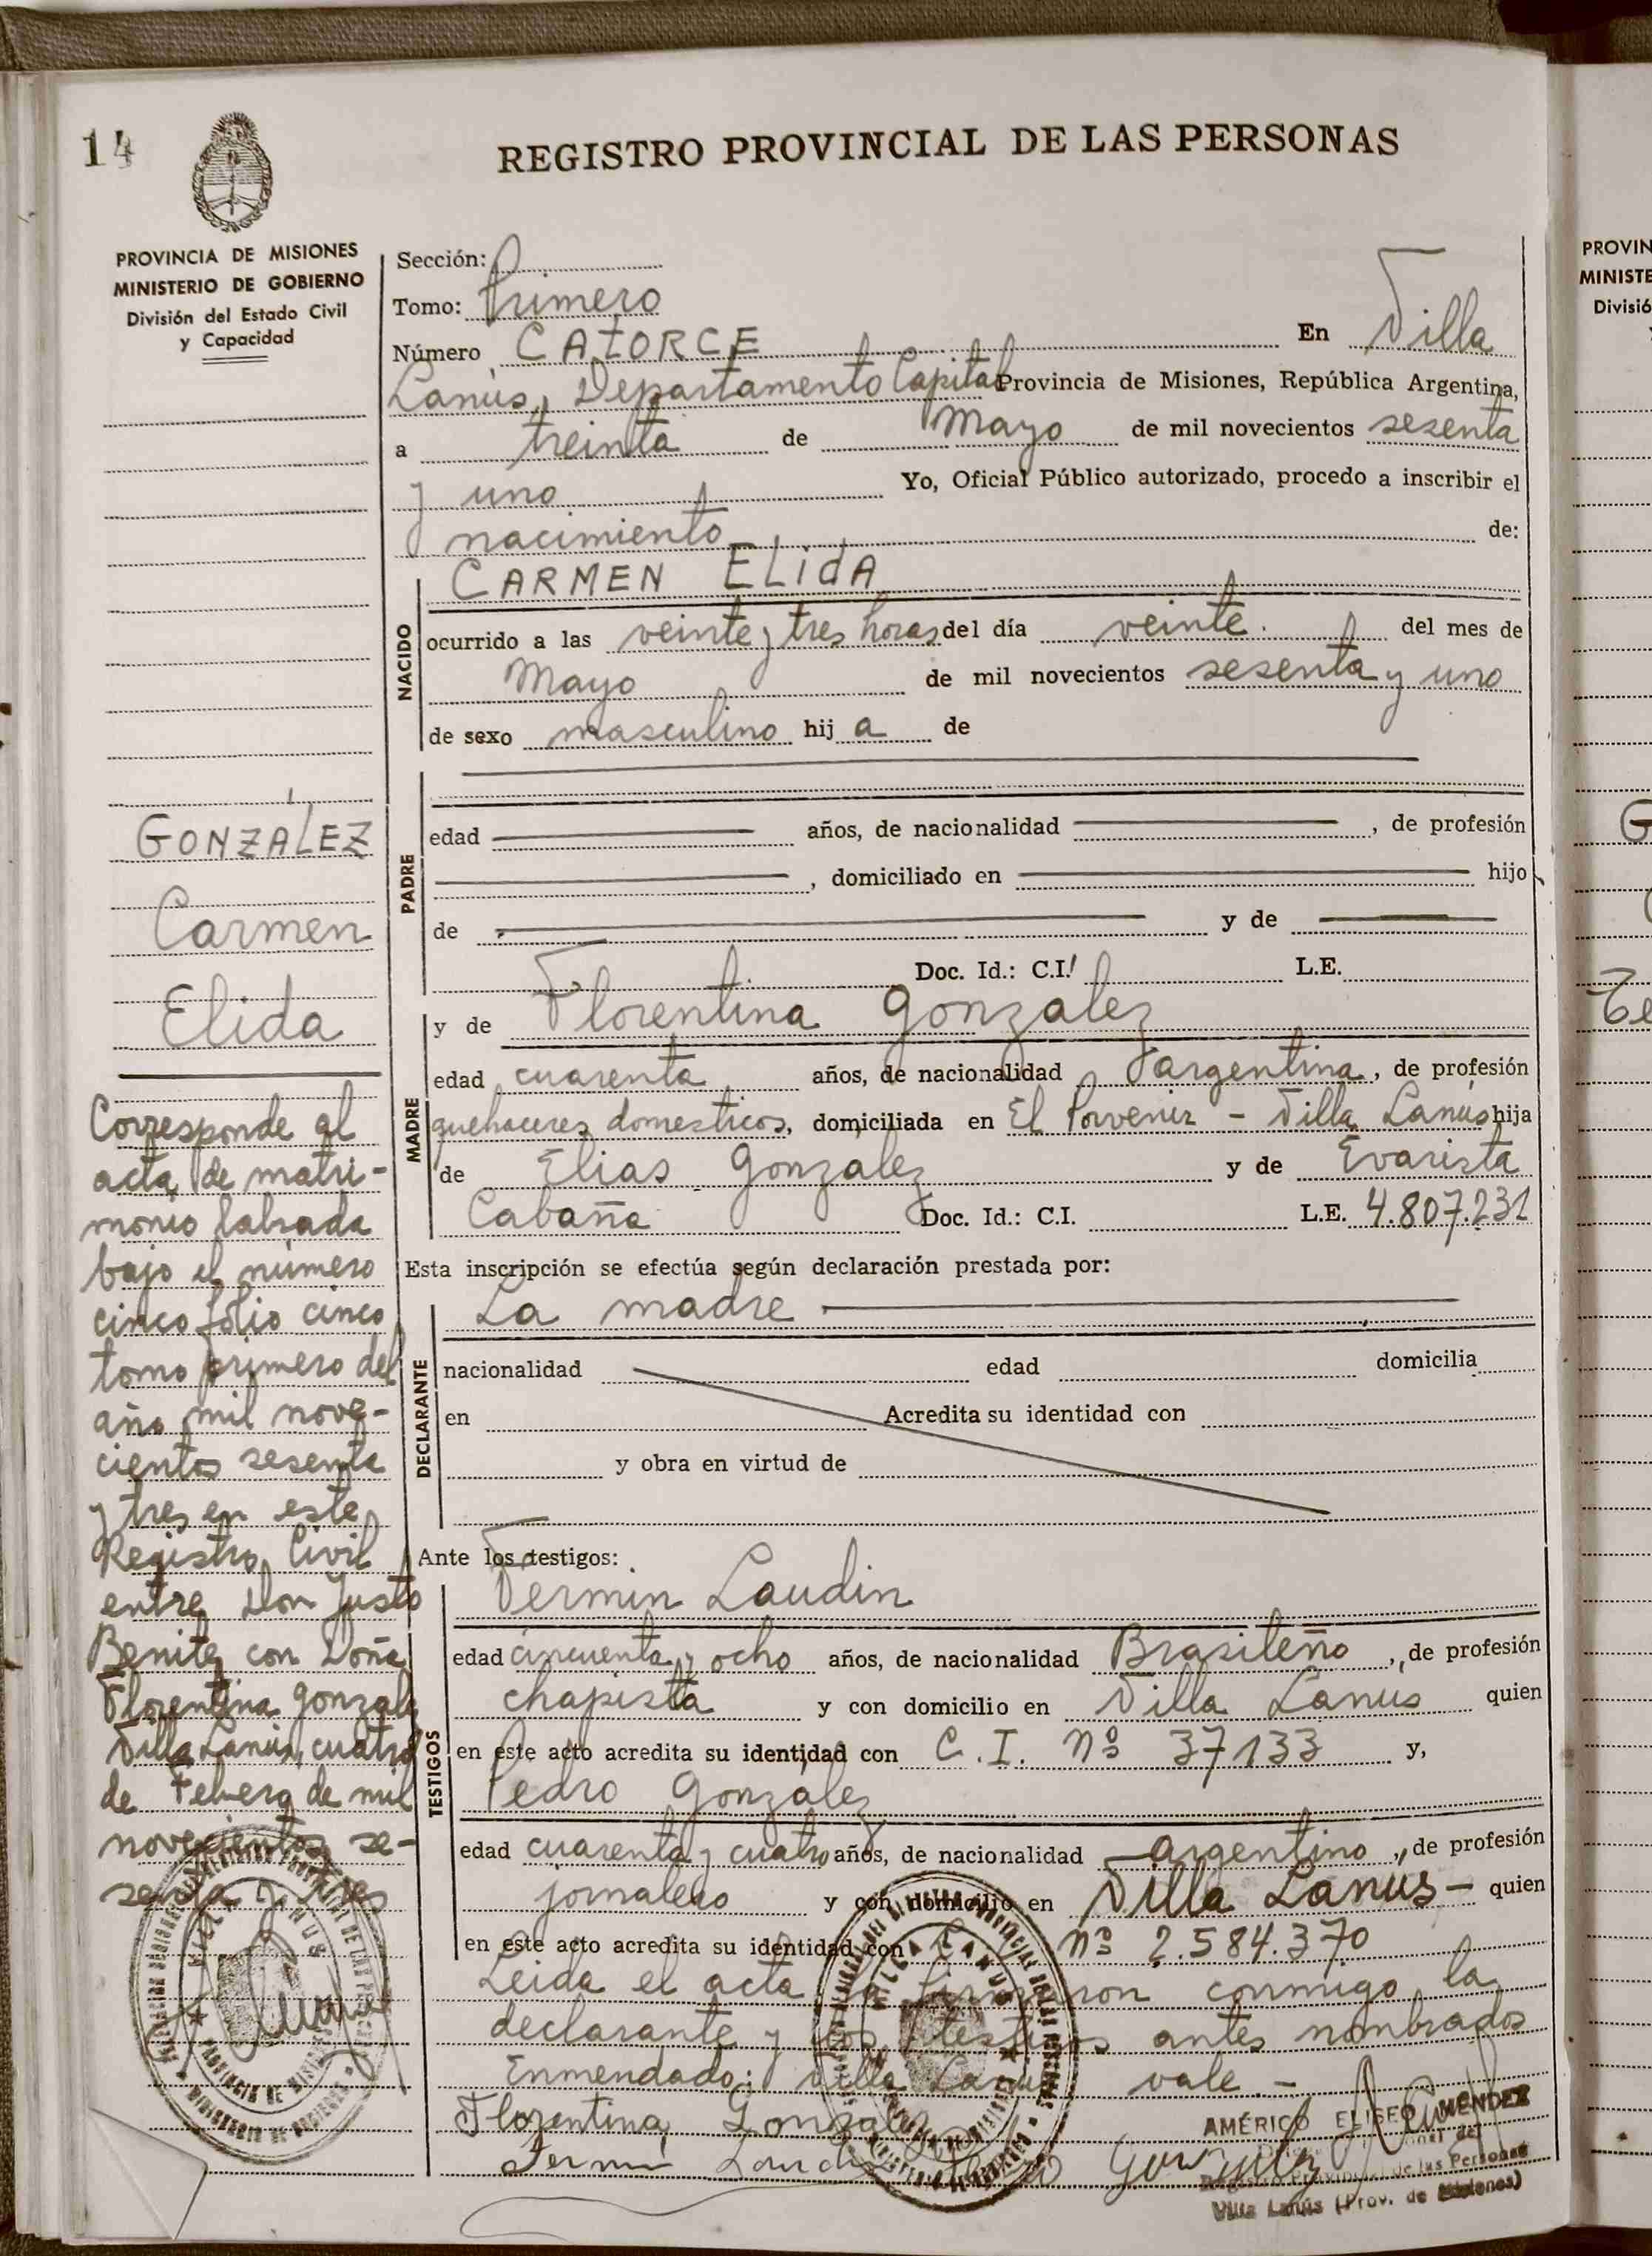 14
REGISTRO PROVINCIAL DE LAS PERSONAS
PROVINCIA DE MISIONES
MINISTERIO DE GOBIERNO
División del Estado Civil
y Capacidad
Sección:
Tomo: Primero
Número CATORCE En Villa
Lanús, Departamento Capital Provincia de Misiones, República Argentina,
a treinta de Mayo de mil novecientos sesenta
y uno Yo, Oficial Público autorizado, procedo a inscribir el
nacimiento de:
NACIDO
CARMEN ELidA
ocurrido a las veinte y tres horas del día veinte. del mes de
Mayo de mil novecientos sesenta y uno
de sexo masculino hij a de
PADRE
edad años, de nacionalidad , de profesión
, domiciliado en hijo
de y de
Doc. Id.: C.I. L.E.
MADRE
y de Florentina Gonzalez
edad cuarenta años, de nacionalidad argentina, de profesión
quehaceres domesticos, domiciliada en El Porvenir - Villa Lanús hija
de Elias Gonzalez y de Evarista
Cabaña Doc. Id.: C.I. L.E. 4.807.231
Esta inscripción se efectúa según declaración prestada por:
DECLARANTE
La madre
nacionalidad edad domicilia
en Acredita su identidad con
y obra en virtud de
Ante los testigos:
TESTIGOS
Fermin Laudin
edad cincuenta y ocho años, de nacionalidad Brasileño, de profesión
chapista y con domicilio en Villa Lanus quien
en este acto acredita su identidad con C. I. Nº 37133 y,
Pedro Gonzalez
edad cuarenta y cuatro años, de nacionalidad argentino, de profesión
jornalero y con domicilio en Villa Lanus - quien
en este acto acredita su identidad con Nº 2.584.370
Leida el acta la firmaron conmigo la
declarante y los testigos antes nombrados
Enmendado: Villa Lanus vale.-
Florentina Gonzalez
Fermin Laudin Gonzalez
AMÉRICO ELISEO MENDEZ
Registro Provincial de las Personas
Villa Lanús (Prov. de Misiones)
GONZÁLEZ
Carmen
Elida
Corresponde al
acta de matri-
monio labrada
bajo el número
cinco folio cinco
tomo primero del
año mil nove-
cientos sesenta
y tres en este
Registro Civil
entre Don Justo
Benitez con Doña
Florentina Gonzalez
Villa Lanús, cuatro
de Febrero de mil
novecientos se-
senta y tres
PROVIN
MINISTE
Divisió